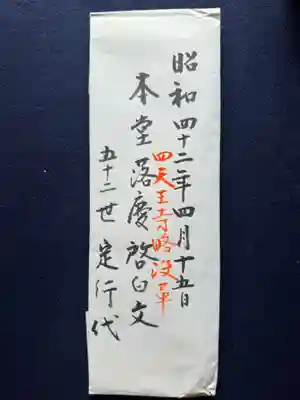 昭和四十二年四月十五日
四天王寺略沿革
本堂落慶啓白文
五十二世 定行代